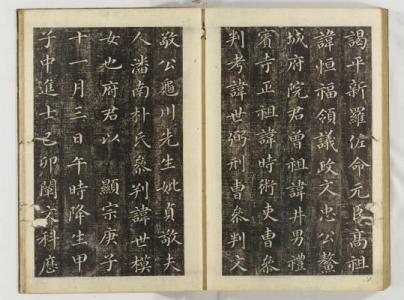 謁平新羅佐命元臣高祖
諱恒福領議政文忠公鰲
城府院君曾祖諱井男禮
賓寺正祖諱時術吏曹叅
判考諱世弼刑曹叅判文
敬公龜川先生妣貞敬夫
人潘南朴氏叅判諱世模
女也府君以 顯宗庚子
十一月三日午時降生甲
子中進士己卯闡文科歷